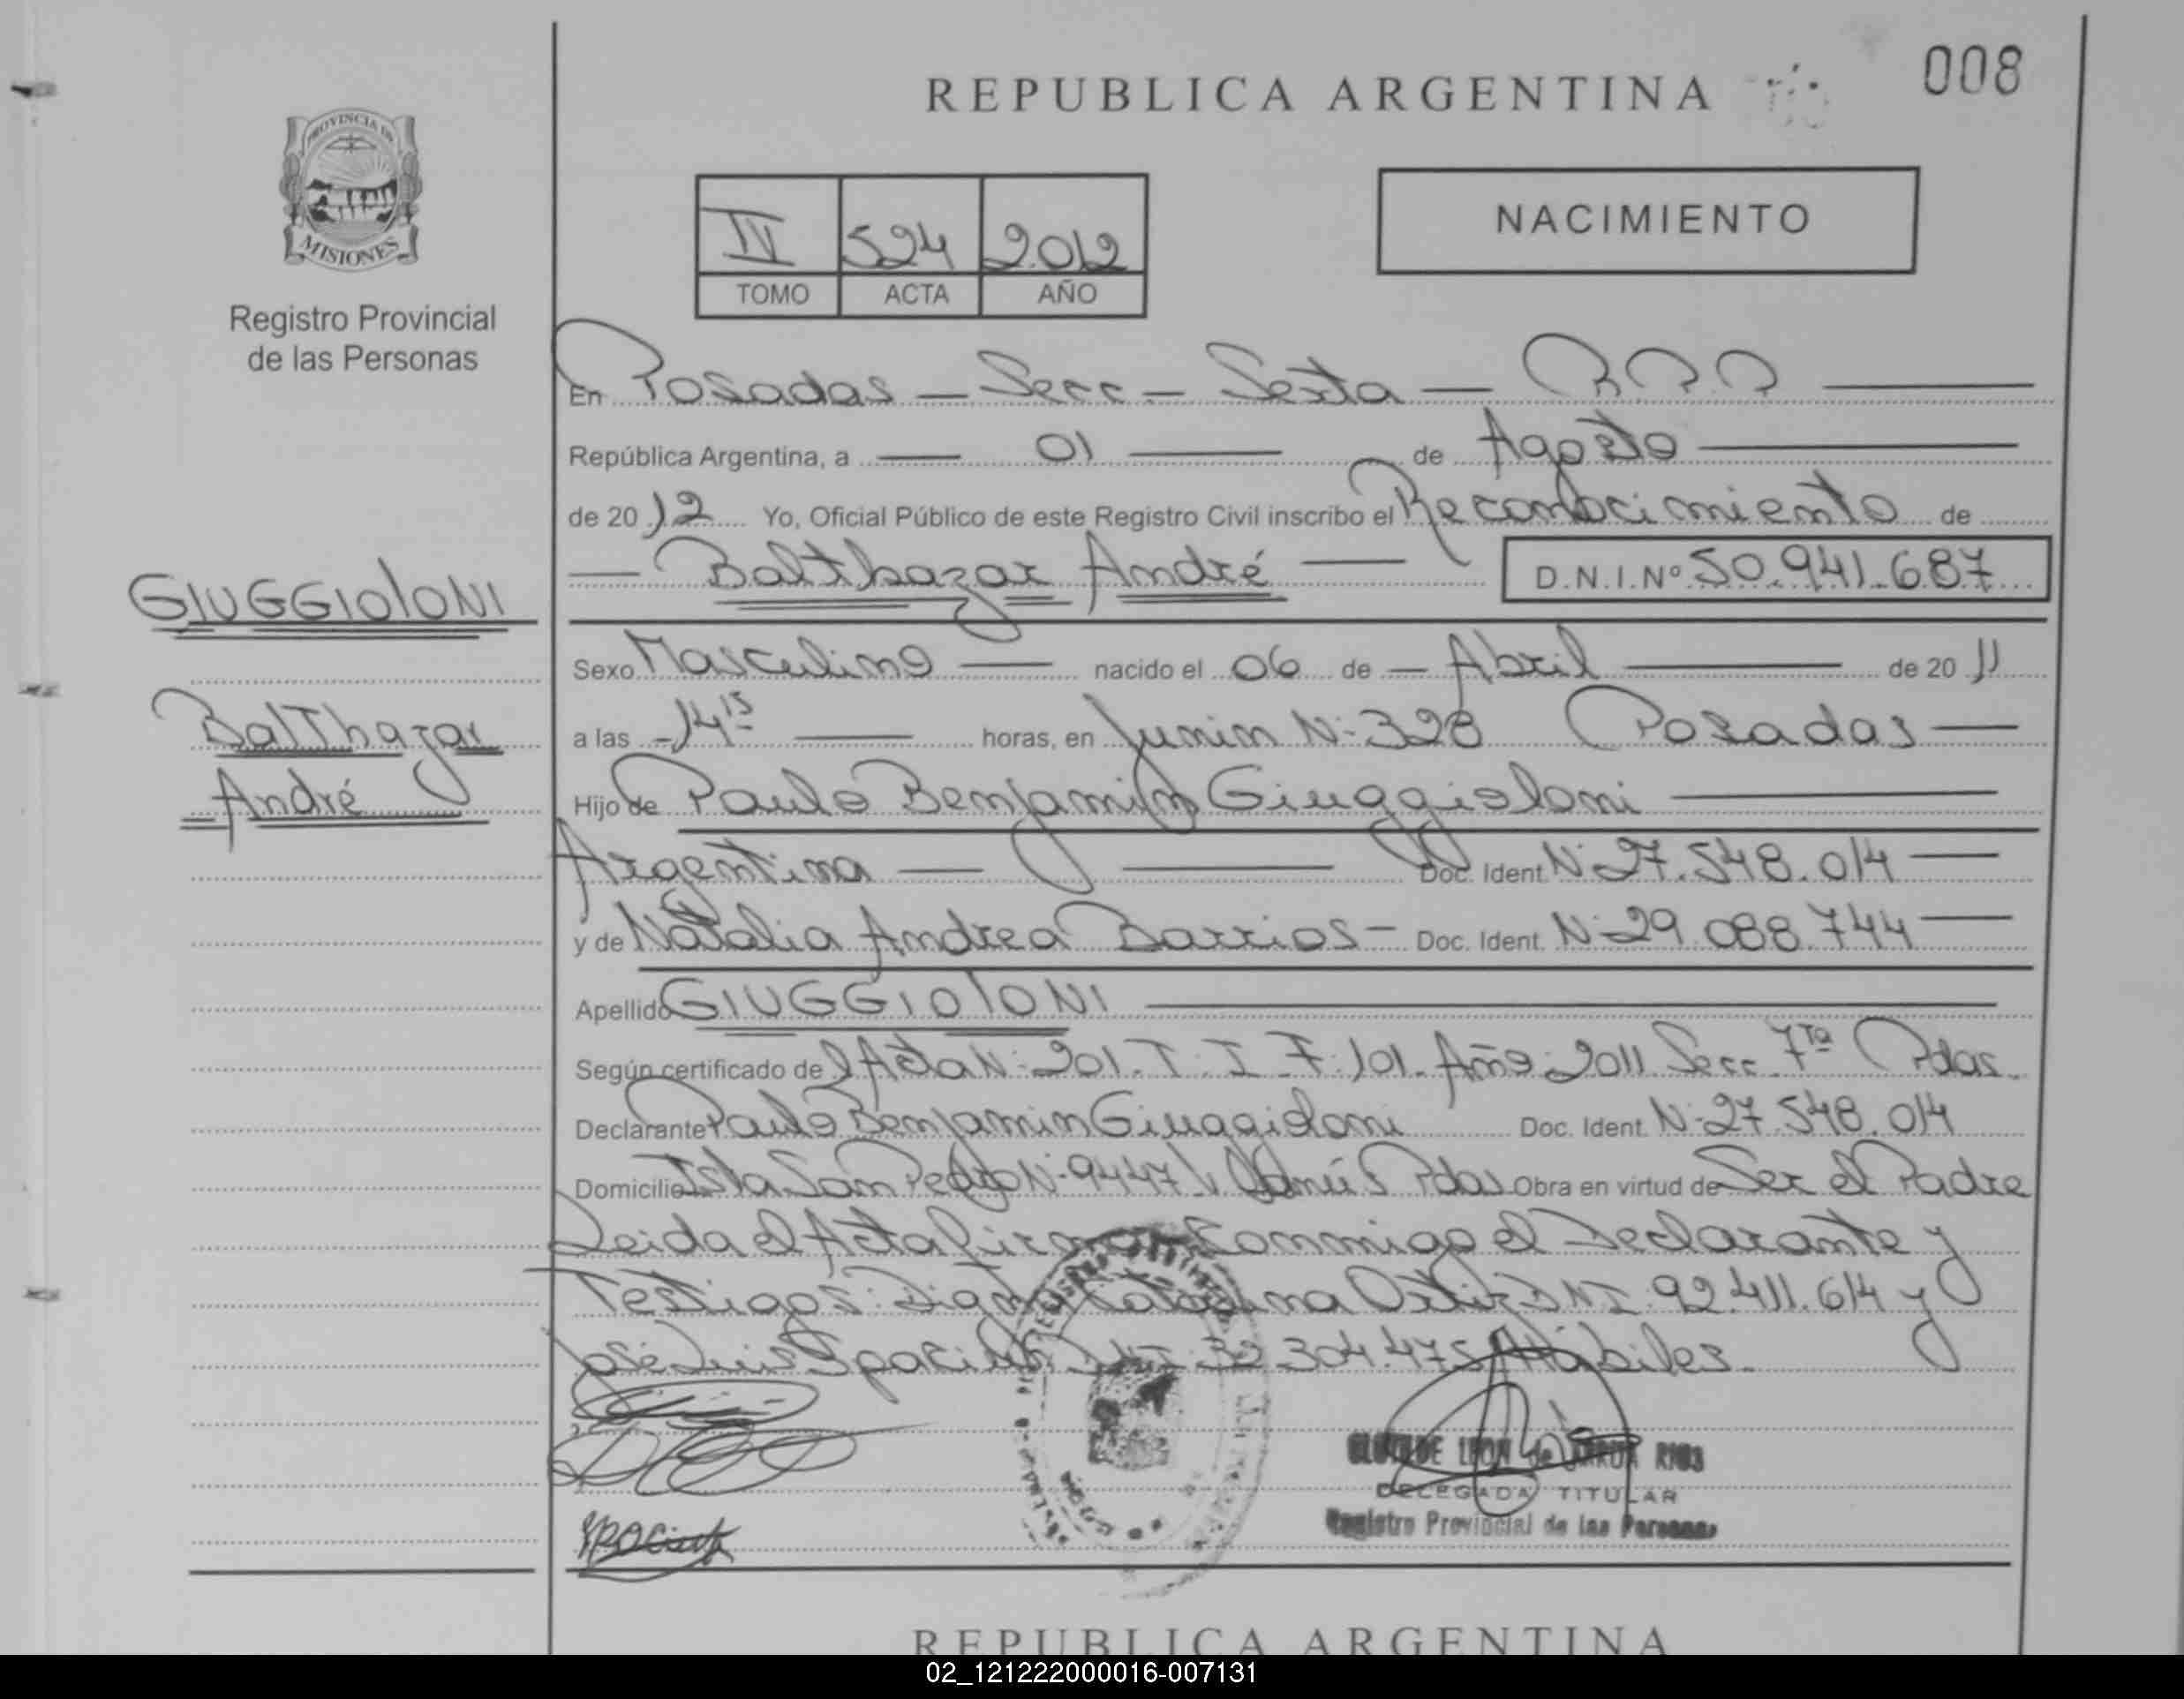 008
REPUBLICA ARGENTINA
PROVINCIA DE
MISIONES
Registro Provincial
de las Personas
IV 524 2012
TOMO ACTA AÑO
NACIMIENTO
En Posadas — Secc — Sexta — R.P.P.
República Argentina, a — 01 — de Agosto
de 2012 Yo, Oficial Público de este Registro Civil inscribo el Reconocimiento de
— Balthazar André — D.N.I.Nº 50.941.687
GIUGGIOlONI
Balthazar
André
Sexo Masculino — nacido el 06 de — Abril — de 2011
a las - 14 15 — horas, en Junin N: 328 Posadas —
Hijo de Paulo Benjamin Giuggioloni —
Argentina — Doc. Ident. N: 27.548.014 —
y de Natalia Andrea Barrios - Doc. Ident. N: 29.088.744 —
Apellido GIUGGIOlONI
Según certificado de el Acta N: 201. T: I. F: 101. Año: 2011 Secc. 7ta Pdas.
Declarante Paulo Benjamin Giuggioloni Doc. Ident. N: 27.548.014
Domicilio Isla San Pedro N: 9447 Pdas Obra en virtud de Ser el Padre
Leida el Acta firman conmigo el Declarante y
Testigos: Digna Catalina Ortiz DNI 92.411.614 y
José Luis DNI: 32.304.473 Hábiles.
CLOTILDE LEON de RIOS
DELEGADA TITULAR
Registro Provincial de las Personas
REPUBLICA ARGENTINA
02_121222000016-007131